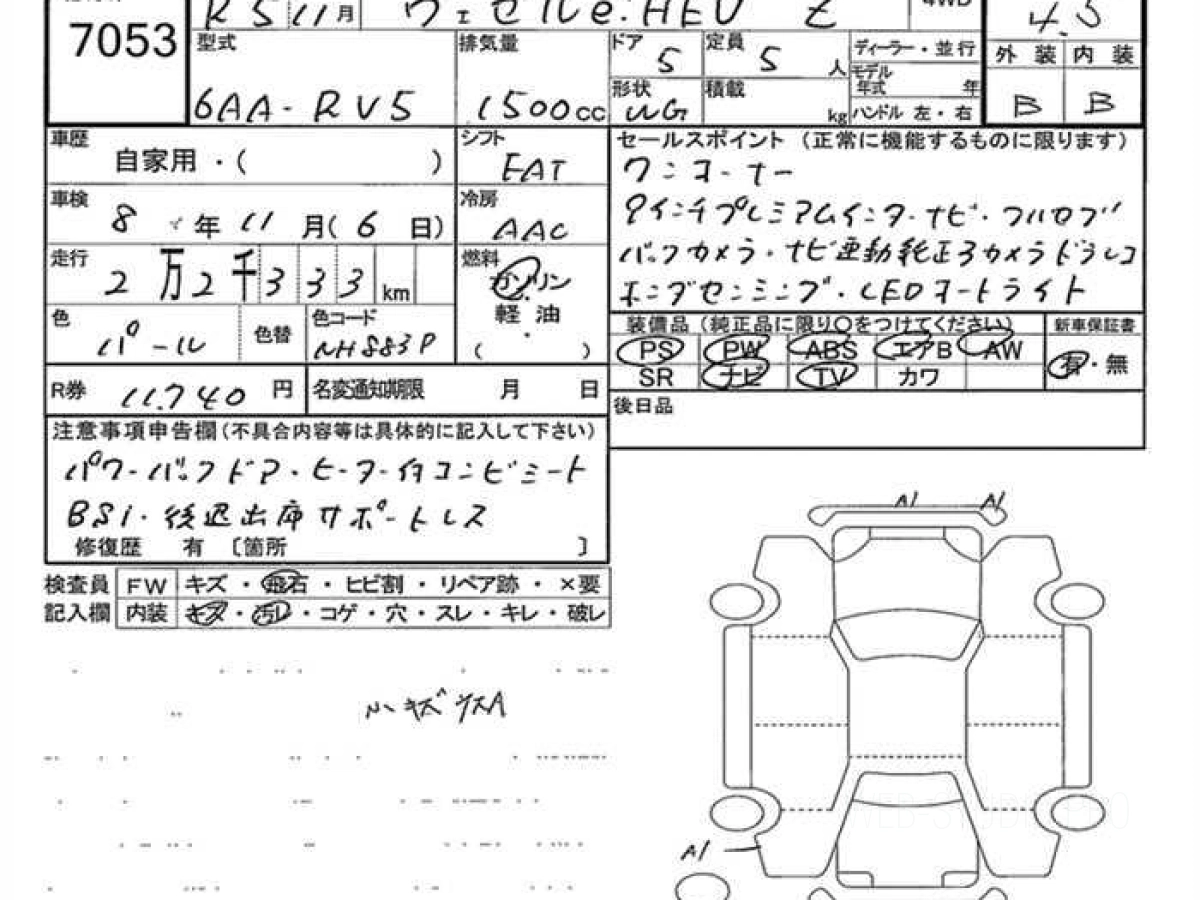 R5 11月 ヴェゼル e:HEV Z 4WD 4.5
7053 型式 排気量 ドア 5 定員 5 人 ディーラー・並行 外装 内装
6AA-RV5 1500cc 形状 WG 積載 kg モデル年式 年 ハンドル 左・右 B B
車歴 自家用・( ) シフト FAT セールスポイント (正常に機能するものに限ります)
ワンオーナー
車検 8年 11月(6日) 冷房 AAC
9インチプレミアムインターナビ・フルセグ
走行 2万2千333km 燃料 ガソリン
バックカメラ・ナビ連動純正3カメラドラレコ
軽油 ( )
ホンダセンシング・LEDオートライト
色 パール 色替 色コード NH883P
装備品 (純正品に限り○をつけてください) 新車保証書
PS PW ABS エアB AW 有・無
SR ナビ TV カワ
R券 11,740円 名変通知期限 月 日
後日品
注意事項申告欄(不具合内容等は具体的に記入して下さい)
パワーバックドア・ヒーター付コンビシート
BSi・後退出庫サポートレス
修復歴 有 〔箇所 〕
A1 A1
検査員 FW キズ・飛石・ヒビ割・リペア跡・×要
記入欄 内装 キズ・汚レ・コゲ・穴・スレ・キレ・破レ
小キズ
A1